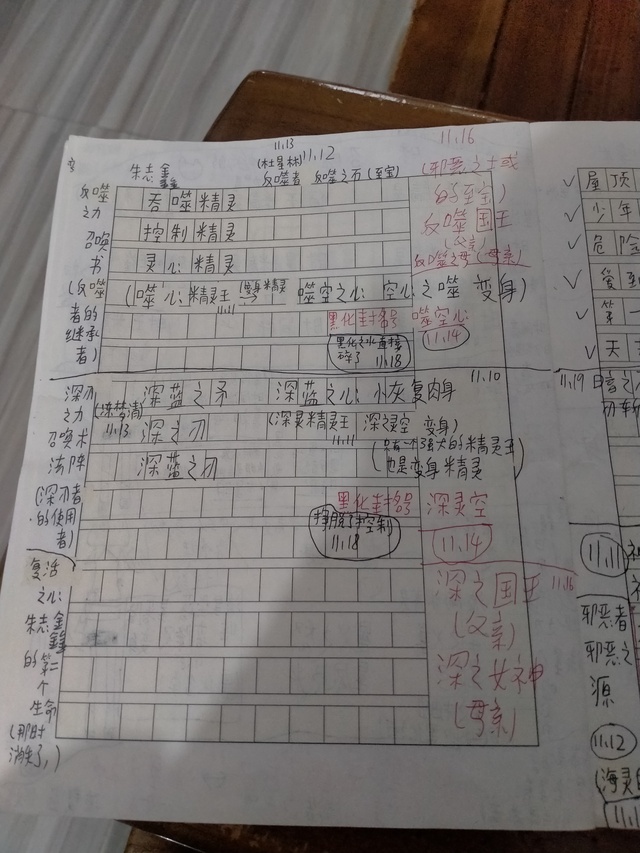 11.13
(杜星林) 11.12
11.16
朱志鑫
反噬者 反噬之石(至宝)
(邪恶之士或
的至宝)
反噬
之力
召唤
书
(反噬
者的
继承
者)
吞噬精灵
控制精灵
灵心精灵
(噬心精灵王
11.11
噬空之心 空心之噬 变身)
反噬国王
(父亲)
反噬之母(母亲)
黑化封号 噬空心
11.14
黑化之水直接
碎了 11.18
深刃
之力
召唤术
法阵
(深刃者
的使用
者)
11.13
深蓝之矛 深蓝之心 小灰复肉身
11.10
深之刃
(深灵精灵王 深之灵空 变身)
11.11
深蓝之刃
只有一个强大的精灵王
也是变身精灵)
黑化封号 深灵空
挣脱了控制
11.18
11.14
复活
之心
朱志鑫
的第二
个
生命
(那时
消失了)
深之国王 11.16
(父亲)
深之女神
(母亲)
✓ 屋顶
✓ 少年
✓ 危险
✓ 爱到
✓ 第一
✓ 天
11.19
11.11
邪恶者
邪恶之
源
11.12
(海灵